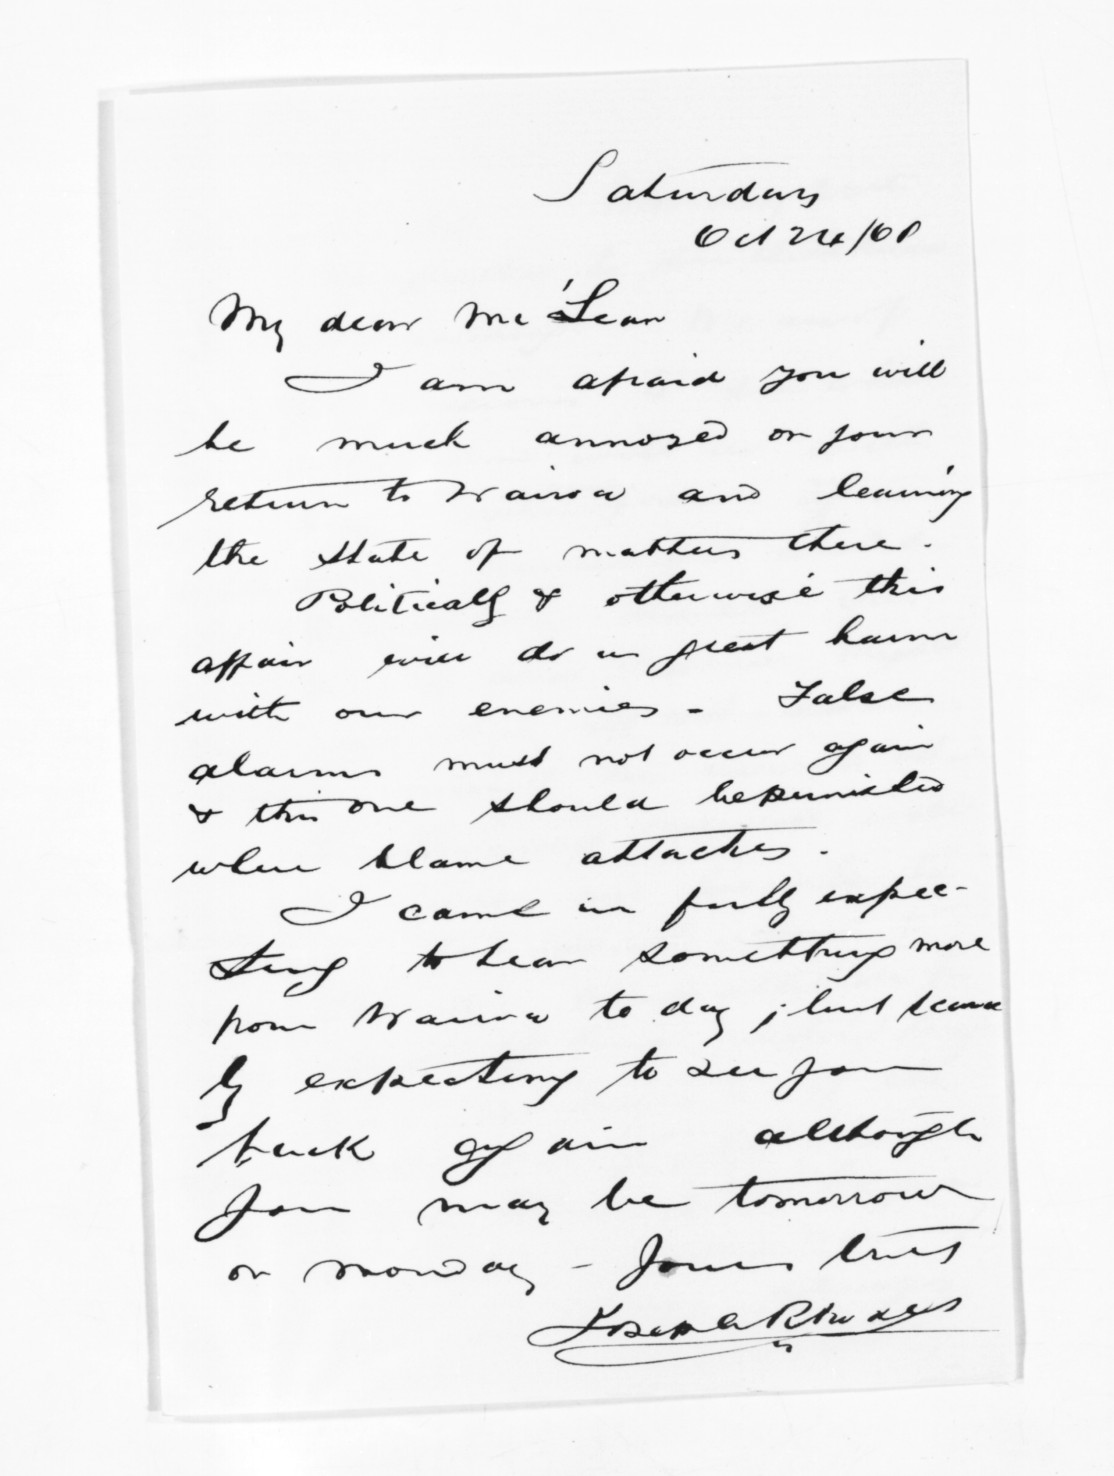 Saturday
Oct 24/68
My dear McLean
I am afraid you will
be much annoyed on your
return to Wairoa and learning
the state of matters there.
Politically & otherwise this
affair will do us great harm
with our enemies - False
alarms must not occur again
& this one should be punished
where blame attaches.
I came in fully expec-
ting to hear something more
from Wairoa to day ; but scarce
ly expecting to see you
back again although
you may be tomorrow
or monday - Yours truly
Joseph Rhodes